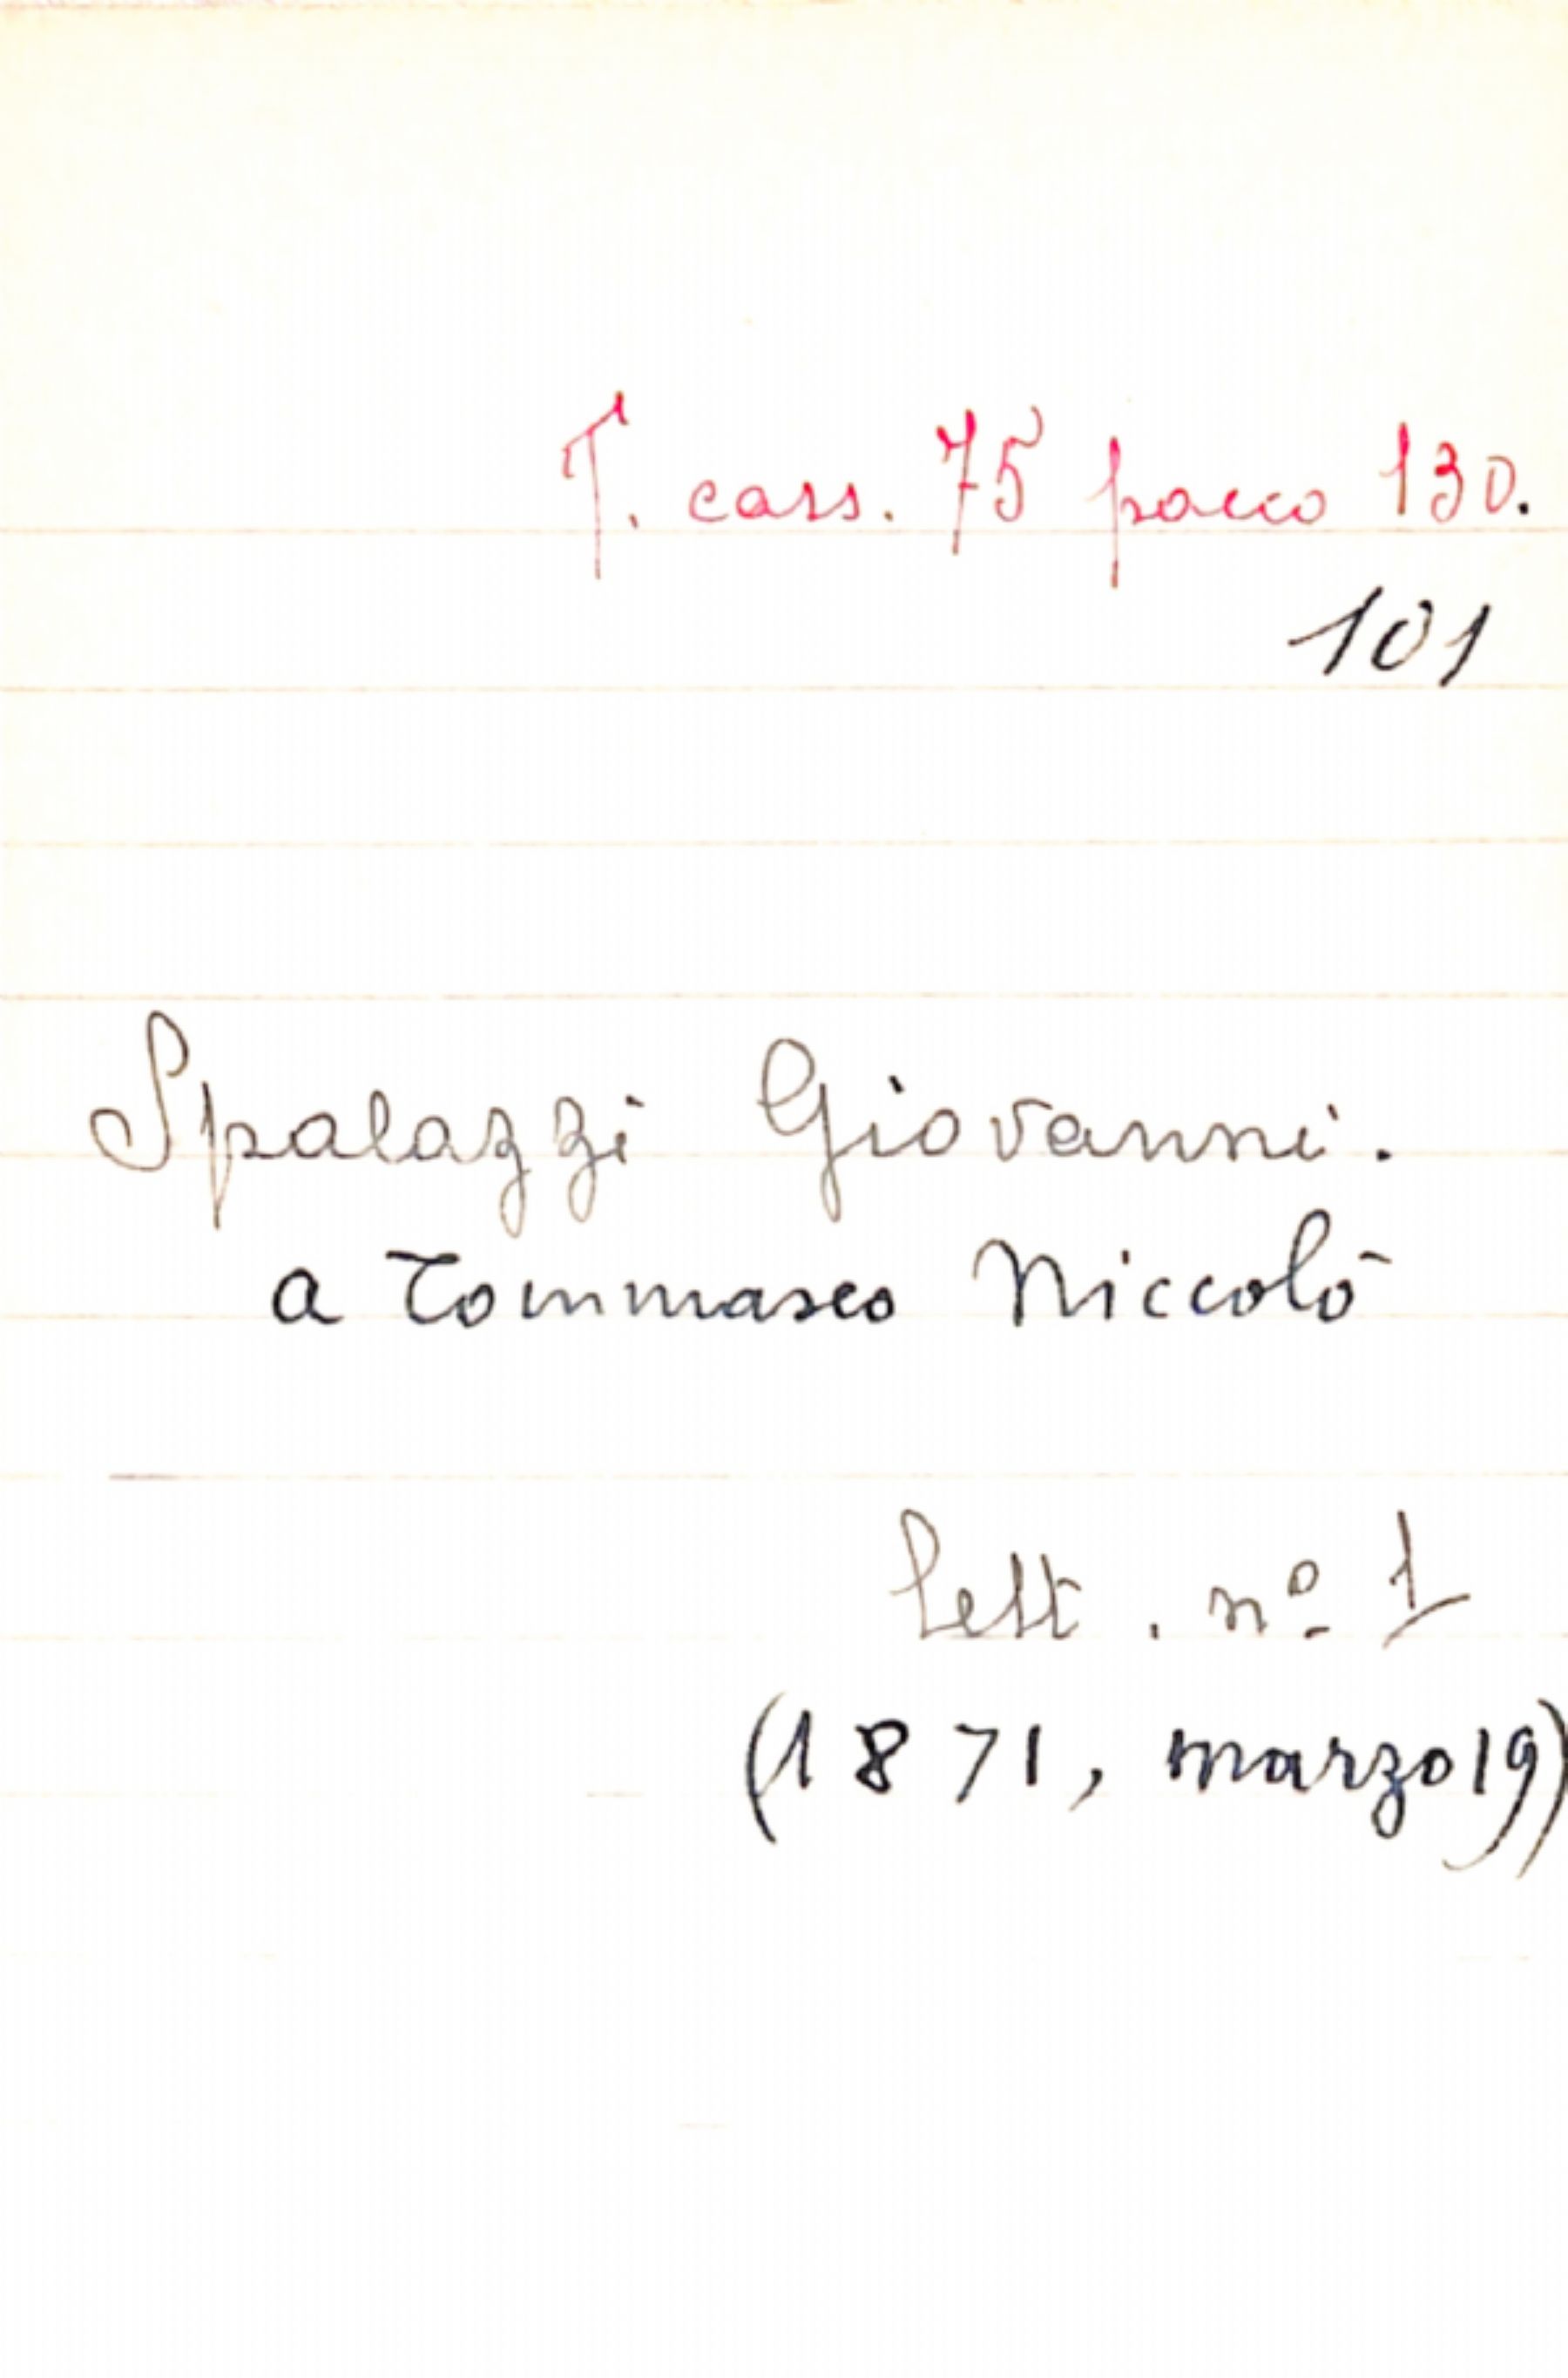 T. cass. 75 pacco 130.
101
Spalazzi Giovanni.
a Tommaseo Niccolò
lett. nº 1
(1871, marzo 19)